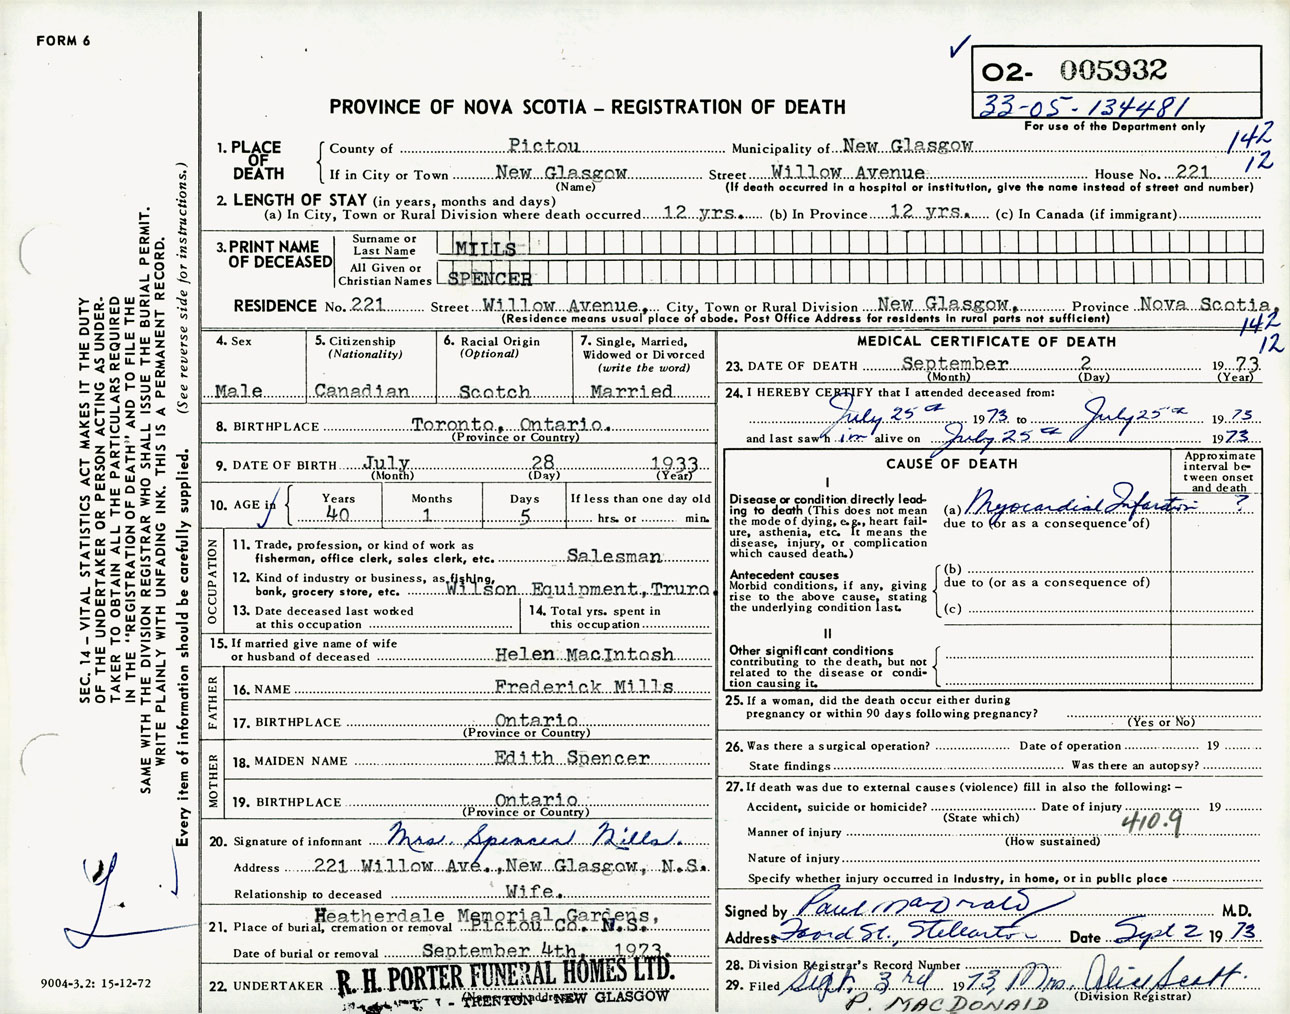 FORM 6
O2- 005932
33-05-134481
For use of the Department only
PROVINCE OF NOVA SCOTIA – REGISTRATION OF DEATH
142
12
1. PLACE OF DEATH
County of Pictou Municipality of New Glasgow
If in City or Town New Glasgow Street Willow Avenue House No. 221
(Name) (If death occurred in a hospital or institution, give the name instead of street and number)
2. LENGTH OF STAY (in years, months and days)
(a) In City, Town or Rural Division where death occurred 12 yrs. (b) In Province 12 yrs. (c) In Canada (if immigrant)
3. PRINT NAME OF DECEASED
Surname or Last Name MILLS
All Given or Christian Names SPENCER
RESIDENCE No. 221 Street Willow Avenue, City, Town or Rural Division New Glasgow, Province Nova Scotia,
(Residence means usual place of abode. Post Office Address for residents in rural parts not sufficient)
142
12
4. Sex
Male
5. Citizenship
(Nationality)
Canadian
6. Racial Origin
(Optional)
Scotch
7. Single, Married,
Widowed or Divorced
(write the word)
Married
8. BIRTHPLACE Toronto, Ontario.
(Province or Country)
9. DATE OF BIRTH July 28 1933
(Month) (Day) (Year)
10. AGE in
Years Months Days If less than one day old
40 1 5 hrs. or min.
OCCUPATION
11. Trade, profession, or kind of work as
fisherman, office clerk, sales clerk, etc. Salesman
12. Kind of industry or business, as fishing,
bank, grocery store, etc. Wilson Equipment, Truro.
13. Date deceased last worked
at this occupation
14. Total yrs. spent in
this occupation
15. If married give name of wife
or husband of deceased Helen MacIntosh
FATHER
16. NAME Frederick Mills
17. BIRTHPLACE Ontario
(Province or Country)
MOTHER
18. MAIDEN NAME Edith Spencer
19. BIRTHPLACE Ontario
(Province or Country)
20. Signature of informant Mrs. Spencer Mills.
Address 221 Willow Ave., New Glasgow, N.S.
Relationship to deceased Wife.
Heatherdale Memorial Gardens,
21. Place of burial, cremation or removal Pictou Co. N.S.
Date of burial or removal September 4th, 1973
22. UNDERTAKER R. H. PORTER FUNERAL HOMES LTD.
TRENTON - NEW GLASGOW
MEDICAL CERTIFICATE OF DEATH
23. DATE OF DEATH September 2 1973
(Month) (Day) (Year)
24. I HEREBY CERTIFY that I attended deceased from:
July 25th 1973 to July 25th 1973
and last saw him alive on July 25th 1973
CAUSE OF DEATH
Approximate
interval be-
tween onset
and death
I
Disease or condition directly lead-
ing to death (This does not mean
the mode of dying, e.g., heart fail-
ure, asthenia, etc. It means the
disease, injury, or complication
which caused death.)
(a) Myocardial Infarction ?
due to (or as a consequence of)
Antecedent causes
Morbid conditions, if any, giving
rise to the above cause, stating
the underlying condition last.
(b)
due to (or as a consequence of)
(c)
II
Other significant conditions
contributing to the death, but not
related to the disease or condi-
tion causing it.
25. If a woman, did the death occur either during
pregnancy or within 90 days following pregnancy?
(Yes or No)
26. Was there a surgical operation? Date of operation 19
State findings Was there an autopsy?
27. If death was due to external causes (violence) fill in also the following: –
Accident, suicide or homicide? Date of injury 19
(State which)
410.9
Manner of injury
(How sustained)
Nature of injury
Specify whether injury occurred in industry, in home, or in public place
Signed by Paul MacDonald M.D.
Address Foord St., Stellarton Date Sept 2 1973
28. Division Registrar's Record Number
29. Filed Sept. 3rd 1973 Mrs. Alice Scott.
(Division Registrar)
P. MACDONALD
SEC. 14 – VITAL STATISTICS ACT MAKES IT THE DUTY
OF THE UNDERTAKER OR PERSON ACTING AS UNDER-
TAKER TO OBTAIN ALL THE PARTICULARS REQUIRED
IN THE "REGISTRATION OF DEATH" AND TO FILE THE
SAME WITH THE DIVISION REGISTRAR WHO SHALL ISSUE THE BURIAL PERMIT.
WRITE PLAINLY WITH UNFADING INK. THIS IS A PERMANENT RECORD.
Every item of information should be carefully supplied. (See reverse side for instructions.)
9004-3.2: 15-12-72